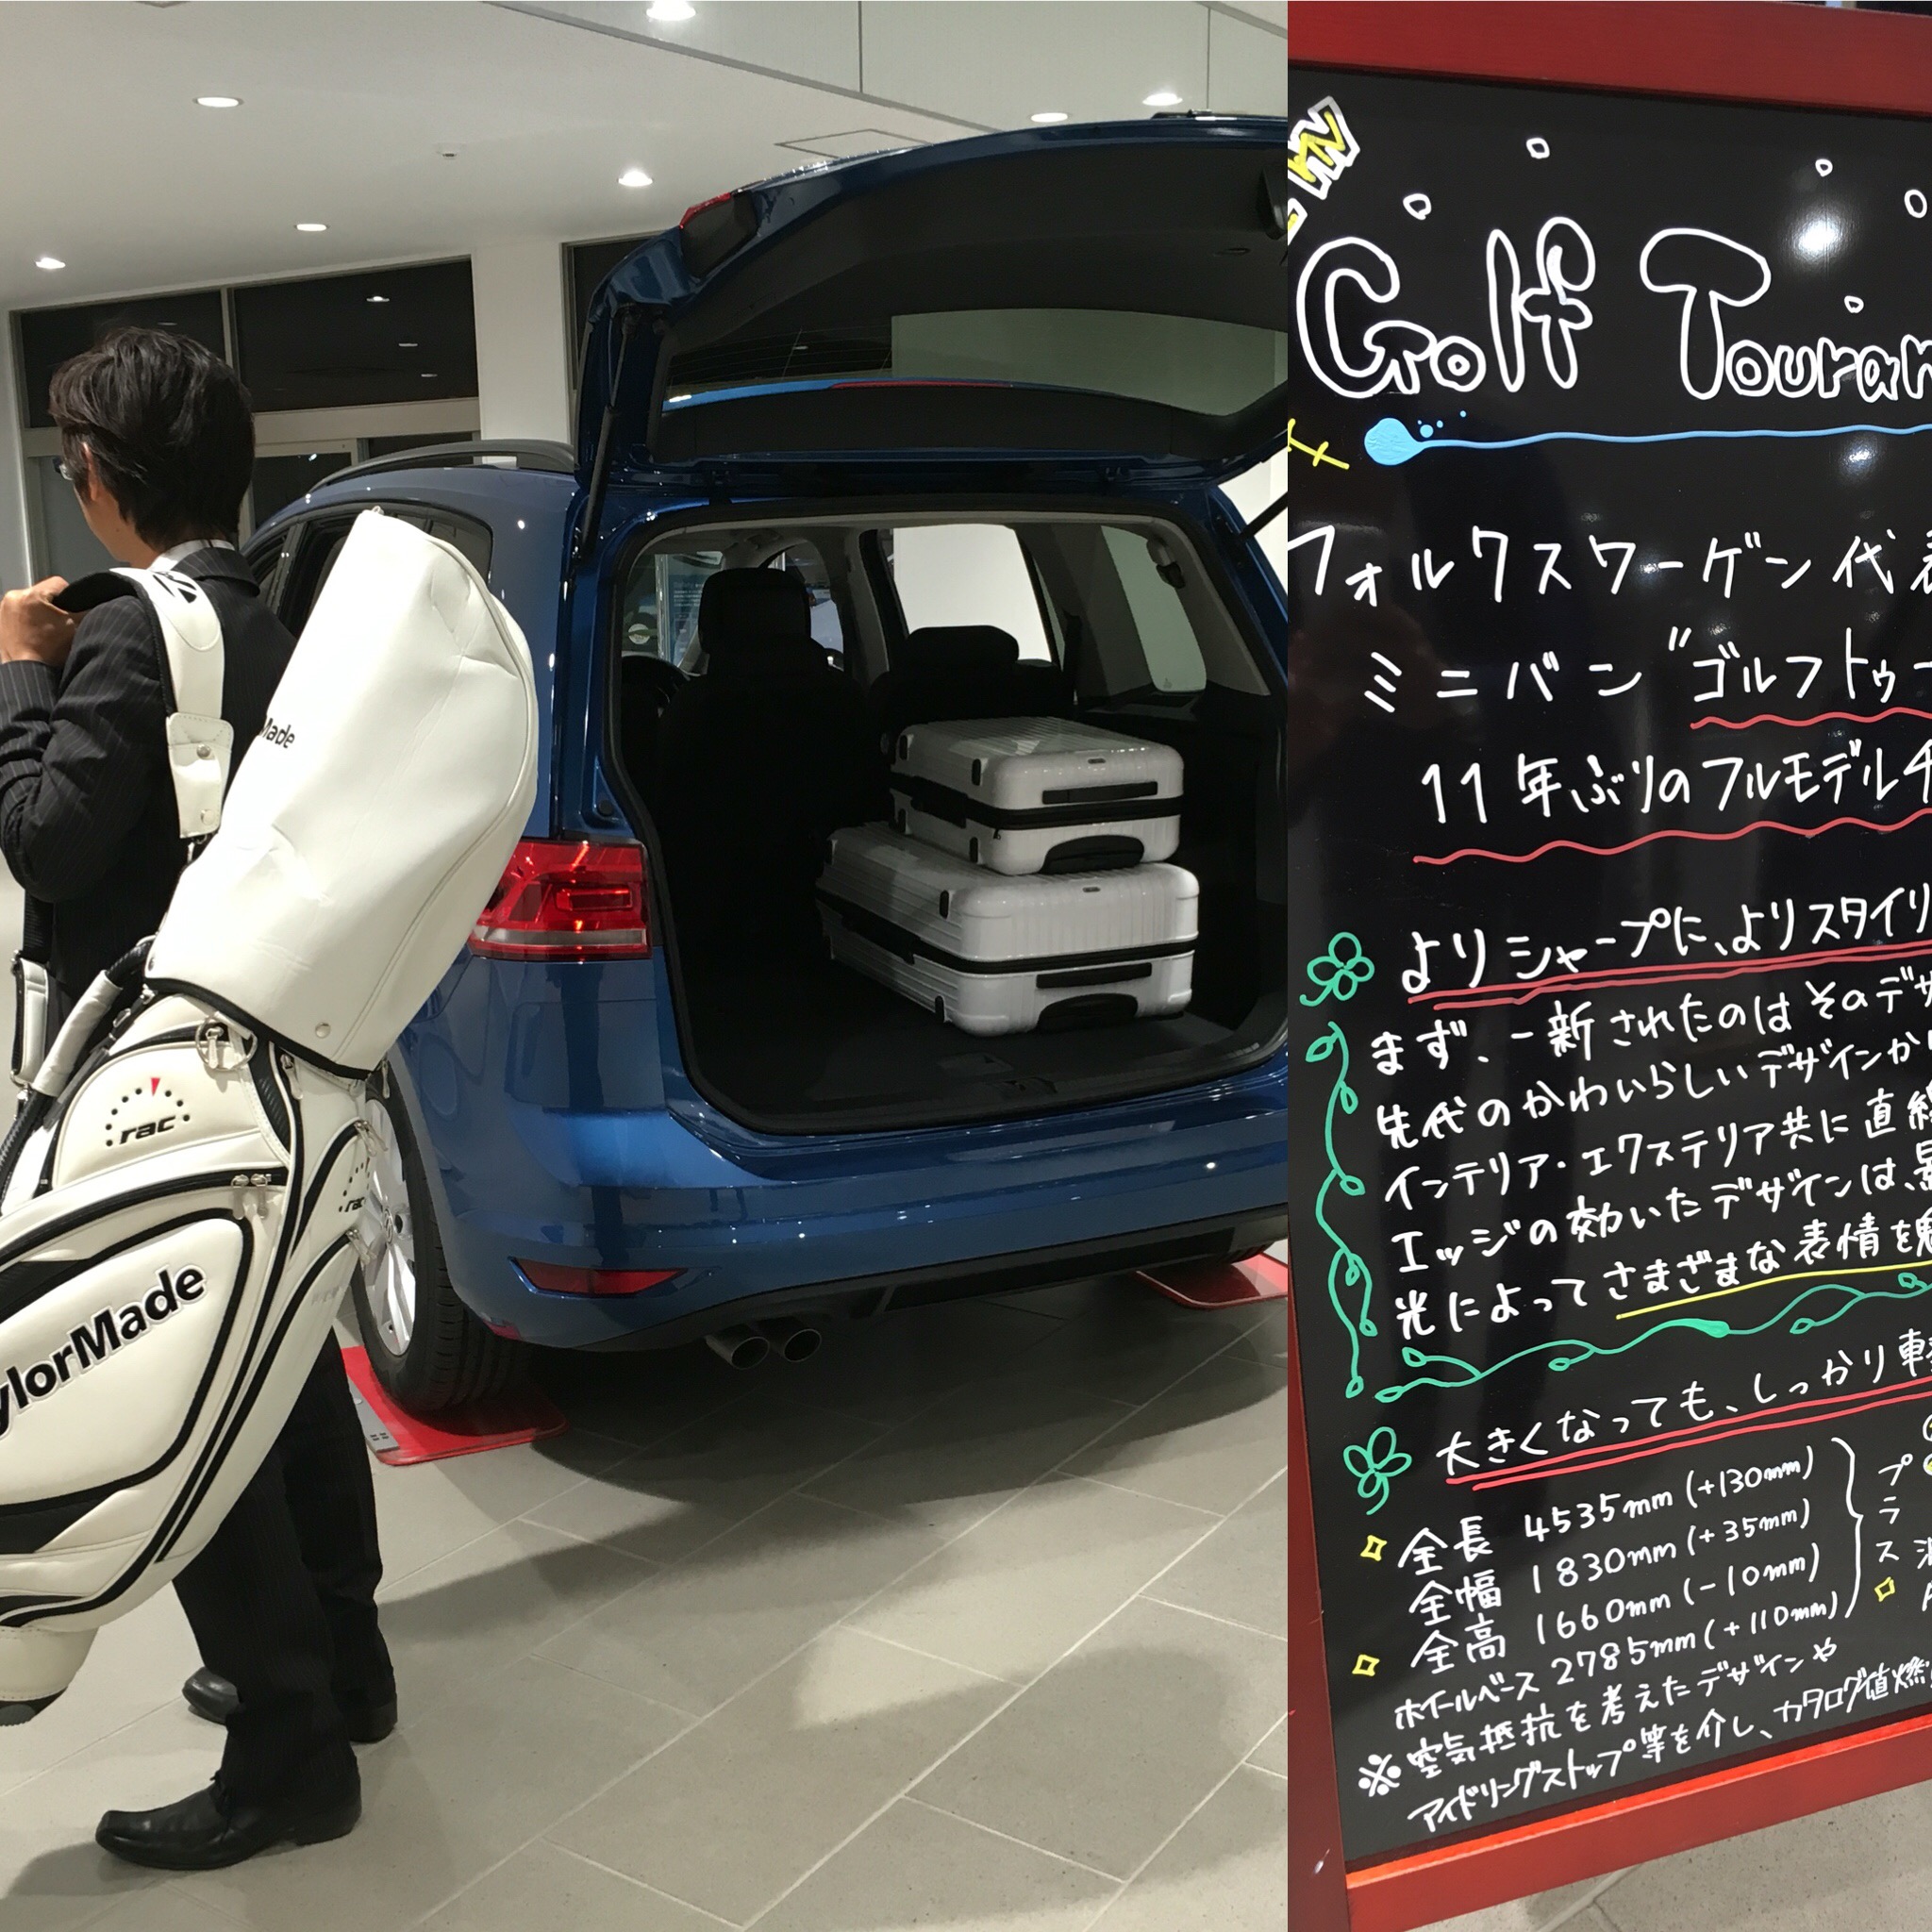 Made
rac
rac
ylorMade
Golf Touran
フォルクスワーゲン代表
ミニバン"ゴルフトゥー
11年ぶりのフルモデルチ
よりシャープに、よりスタイリ
まず、一新されたのはそのデザ
先代のかわいらしいデザインから
インテリア・エクステリア共に直線
エッジの効いたデザインは、
光によってさまざまな表情を魅
大きくなっても、しっかり軽
全長 4535mm (+130mm)
全幅 1830mm (+35mm)
全高 1660mm (-10mm)
ホイールベース 2785mm (+110mm)
プラス
※空気抵抗を考えたデザインや
アイドリングストップ等を介し、カタログ値燃